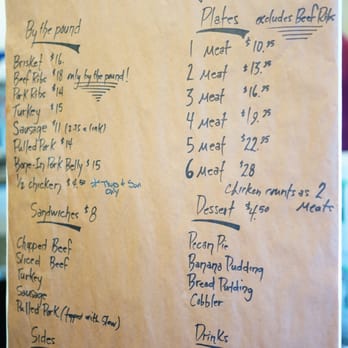 By the pound
Brisket $16.
Beef Ribs $18 only by the pound!
Pork Ribs $14
Turkey $15
Sausage $11 (3.75 a link)
Pulled Pork $14
Bone-In Pork Belly $15
1/2 chicken $4.50
Sandwiches $8
Chopped Beef
Sliced Beef
Turkey
Sausage
Pulled Pork (topped with slaw)
Sides
Plates excludes Beef Ribs
1 Meat $10.95
2 Meat $13.95
3 Meat $16.95
4 Meat $19.95
5 Meat $22.95
6 Meat $28
Chicken counts as 2 Meats
Dessert $4.50
Pecan Pie
Banana Pudding
Bread Pudding
Cobbler
Drinks